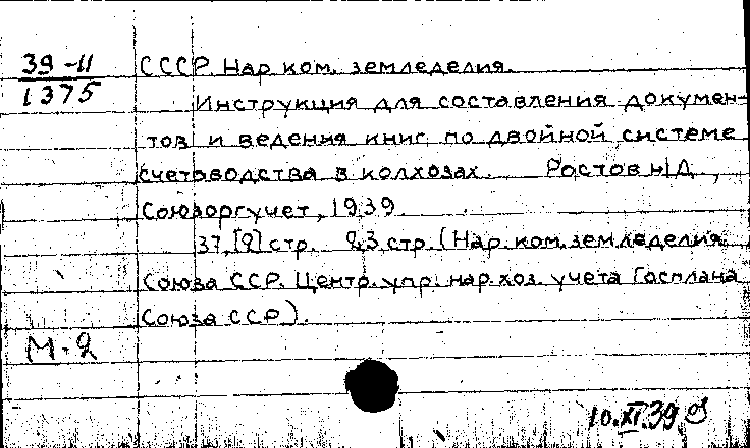 39-11
1375
СССР Нар.ком. земледелия.
Инструкция для составления докумен-
тов и ведения книг по двойной системе
счетоводства в колхозах. Ростов н/Д,
Союзоргучет, 1939.
37, [2] стр. 23 стр. (Нар.ком.земледелия
Союза ССР. Центр. упр. нар.хоз. учета Госплана
Союза ССР).
М-2
10.XI.39